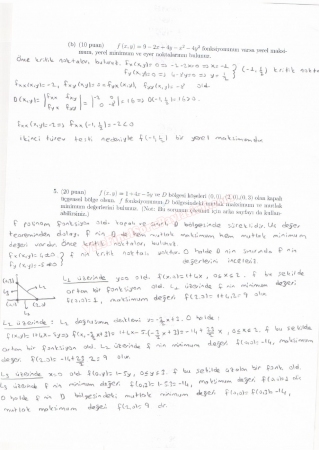 (b) (10 puan) f(x, y) = 9 − 2x + 4y − x² − 4y² fonksiyonunun varsa yerel maksi-
mum, yerel minimum ve eyer noktalarını bulunuz.
Önce kritik noktaları bulalım. fx(x,y)=0 ⇒ -2-2x=0 ⇒ x=-1
fy(x,y)=0 ⇒ 4-8y=0 ⇒ y=1/2 } (-1, 1/2) kritik nokta
fxx(x,y)=-2, fxy(x,y)=0=fyx(x,y), fyy(x,y)=-8 old.
D(x,y)= |fxx fxy| |fyx fyy| = |-2 0| |0 -8| = 16 ⇒ D(-1,1/2)=16>0.
fxx(x,y)=-2 ⇒ fxx(-1,1/2)=-2<0
ikinci türev testi nedeniyle f(-1,1/2) bir yerel maksimumdur.
5. (20 puan) f(x, y) = 1 + 4x − 5y ve D bölgesi köşeleri (0, 0), (2, 0), (0, 3) olan kapalı
üçgensel bölge olsun. f fonksiyonunun D bölgesindeki mutlak maksimum ve mutlak
minimum değerlerini bulunuz. (Not: Bu sorunun çözümü için arka sayfayı da kullan-
abilirsiniz.)
f polinom fonksiyon old. kapalı ve sınırlı D bölgesinde süreklidir. Uç değer
teoreminden dolayı f nin D de hem mutlak maksimum hem mutlak minimum
değeri vardır. Önce kritik noktaları bulalım.
fx(x,y)=4≠0
fy(x,y)=-5≠0 } f nin kritik noktası yoktur. O halde D nin sınırında f nin
değerlerini inceleriz.
L1 üzerinde y=0 old. f(x,0)=1+4x, 0≤x≤2. f bu şekilde
artan bir fonksiyon old. L1 üzerinde f nin minimum değeri
f(0,0)=1, maksimum değeri f(2,0)=1+4.2=9 olur.
L2 üzerinde: L2 doğrusunun denklemi y=-3/2x+3. O halde:
f(x,y)=1+4x-5y ⇒ f(x,-3/2x+3)=1+4x-5(-3/2x+3)=-14+23/2x, 0≤x≤2. f bu şekilde
artan bir fonksiyon old. L2 üzerinde f nin minimum değeri f(0,3)=-14, maksimum
değeri f(2,0)=-14+23/2.2=9 olur.
L3 üzerinde x=0 old f(0,y)=1-5y, 0≤y≤3. f bu şekilde azalan bir fonk. old.
L3 üzerinde f nin minimum değeri f(0,3)=1-5.3=-14, maksimum değeri f(0,0)=1 dir
O halde f nin D bölgesindeki mutlak minimum değeri f(0,3)=-14,
mutlak maksimum değeri f(2,0)=9 dir.